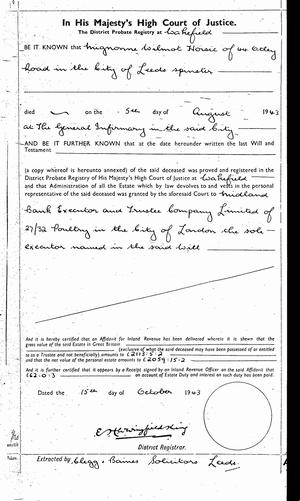 In His Majesty's High Court of Justice.
The District Probate Registry at Wakefield
BE IT KNOWN that Mignonne Wilmot Horsie of 44 Otley
Road in the City of Leeds spinster
died on the 5th day of August 1943
at The General Infirmary in the said City
AND BE IT FURTHER KNOWN that at the date hereunder written the last Will and
Testament
(a copy whereof is hereunto annexed) of the said deceased was proved and registered in the
District Probate Registry of His Majesty's High Court of Justice at Wakefield
and that Administration of all the Estate which by law devolves to and vests in the personal
representative of the said deceased was granted by the aforesaid Court to Midland
Bank Executor and Trustee Company Limited of
27/32 Poultry in the City of London the sole
executor named in the said Will
And it is hereby certified that an Affidavit for Inland Revenue has been delivered wherein it is shewn that the
gross value of the said Estate in Great Britain
(exclusive of what the said deceased may have been possessed of or entitled
to as a Trustee and not beneficially) amounts to £2113-5-2
and that the net value of the personal estate amounts to £2059-15-2
And it is further certified that it appears by a Receipt signed by an Inland Revenue Officer on the said Affidavit that
£62-0-3 on account of Estate Duty and interest on such duty has been paid.
Dated the 15th day of October 1943
District Registrar.
Extracted by Clegg & Baines Solicitors Leeds.